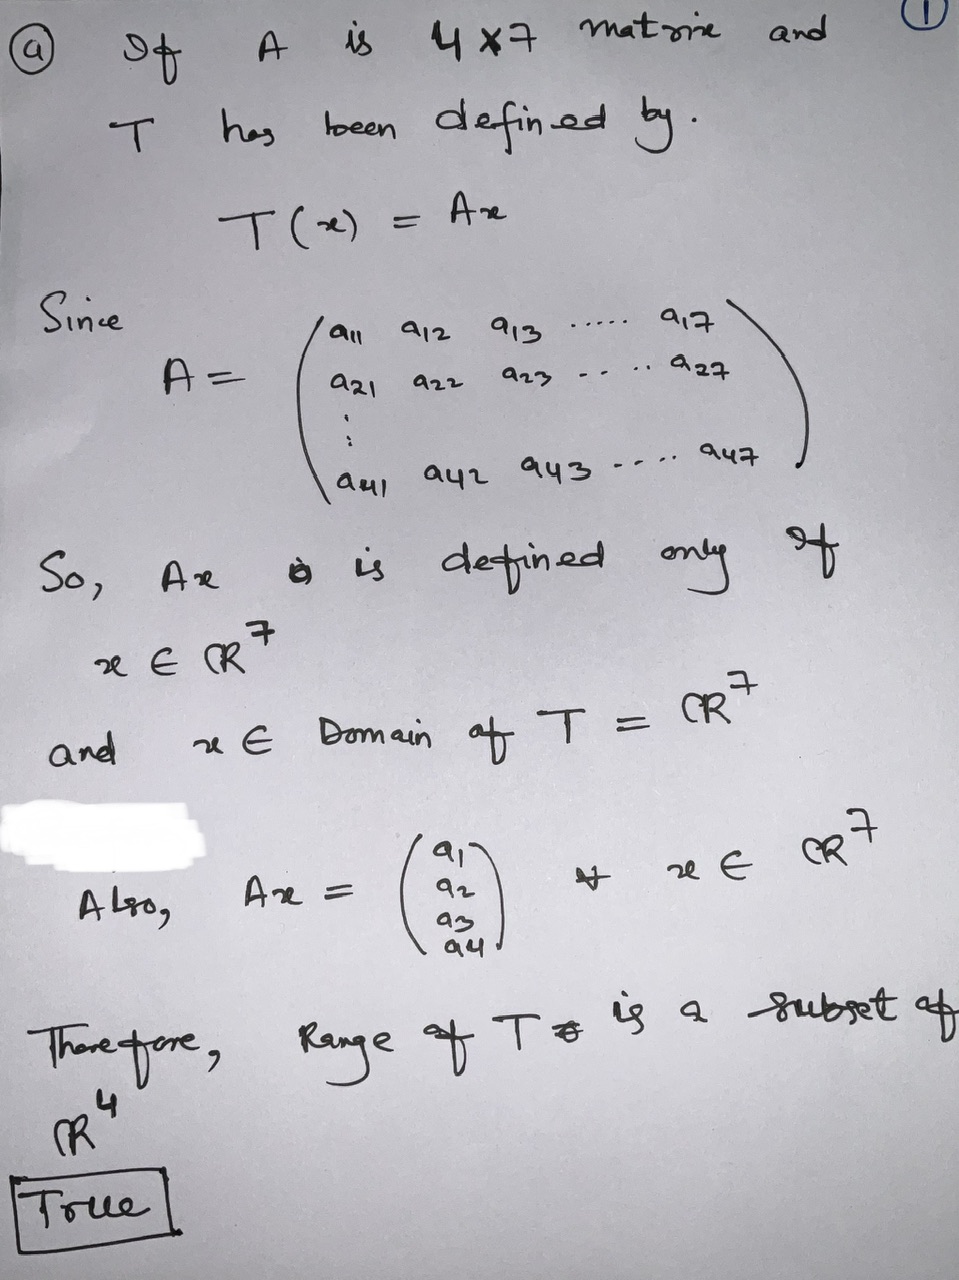 ① 
ⓐ If A is 4×7 matrix and
T has been defined by.
T(x) = Ax
Since
A = ( a11 a12 a13 ..... a17
a21 a22 a23 ..... a27
⋮
a41 a42 a43 ..... a47 )
So, Ax is defined only if
x ∈ ℝ^7
and x ∈ Domain of T = ℝ^7
Also, Ax = ( a1 a2 a3 a4 ) ∀ x ∈ ℝ^7
Therefore, Range of T is a subset of
ℝ^4
True